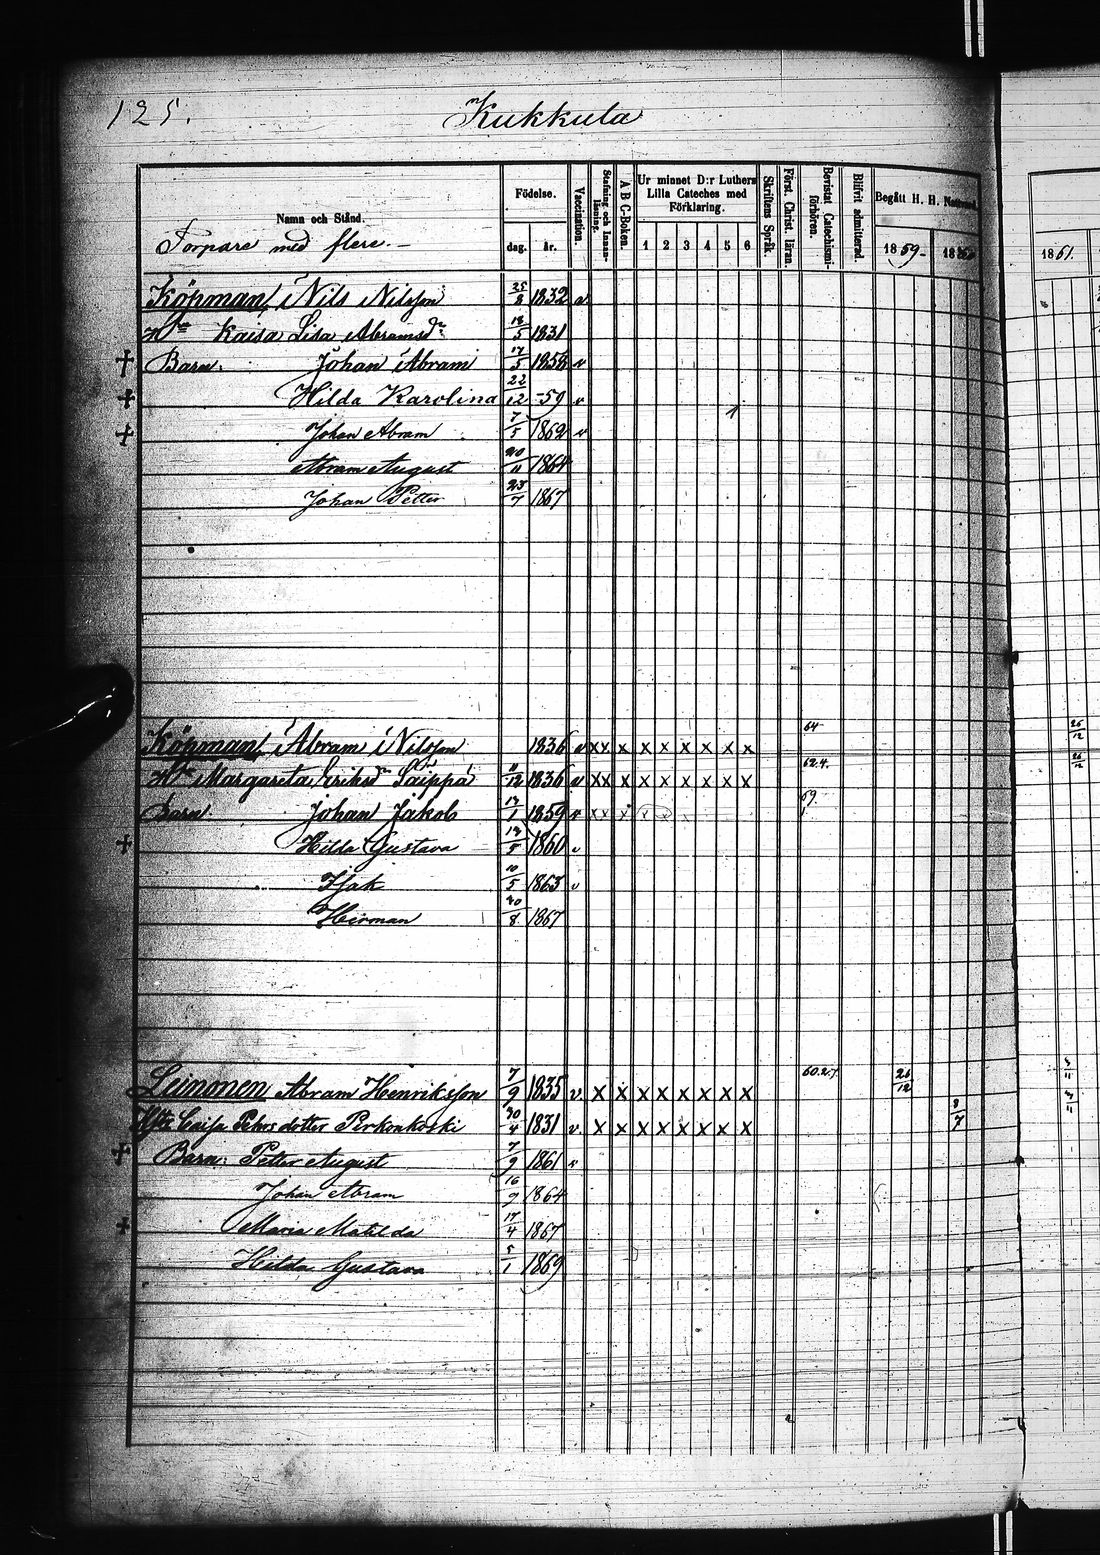 125.
Kukkula
Namn och Stånd.
Torpare med flere.-
Födelse.
dag.
år.
Vaccination.
Stafning och Innanläsning.
A B C-Boken.
Ur minnet D:r Luthers Lilla Cateches med Förklaring.
1 2 3 4 5 6
Skriftens Språk.
Först. Christ. läran.
Bevistat Catechismiförhören.
Blifvit admitterad.
Begått H. H. Nattvard.
1859-
18
1861.
Köpman, Nils Nilsson 25/8 1832 v
H:n Kaisa Lisa Abramsd:r 18/5 1831
+ Barn. Johan Abram 17/5 1858 v
+ Hilda Karolina 22/12 -59 v
+ Johan Abram 7/5 1862 v
Abram August 20/11 1864
Johan Petter 23/7 1867
Köpman, Abram Nilsson 1836 v x x x x x x x x x 64 26/12
Margareta Eriksd:r Saippa 11/12 1836 v x x x x x x x x x 62.4. 26/12
Barn Johan Jakob 1859 v x x x 69.
+ Hilda Gustava 1860 v
Isak 10/5 1863 v
Herman 30/8 1867
Leinonen Abram Henriksson 7/9 1835 v. x x x x x x x x 60.2.7. 26/12
Hst: Caisa Pehrs dotter Perkonkoski 30/4 1831 v. x x x x x x x x 8/7
+ Barn: Petter August 7/9 1861 v
Johan Abram 16/9 1864
+ Maria Matilda 17/4 1867
Hilda Gustava 5/1 1869